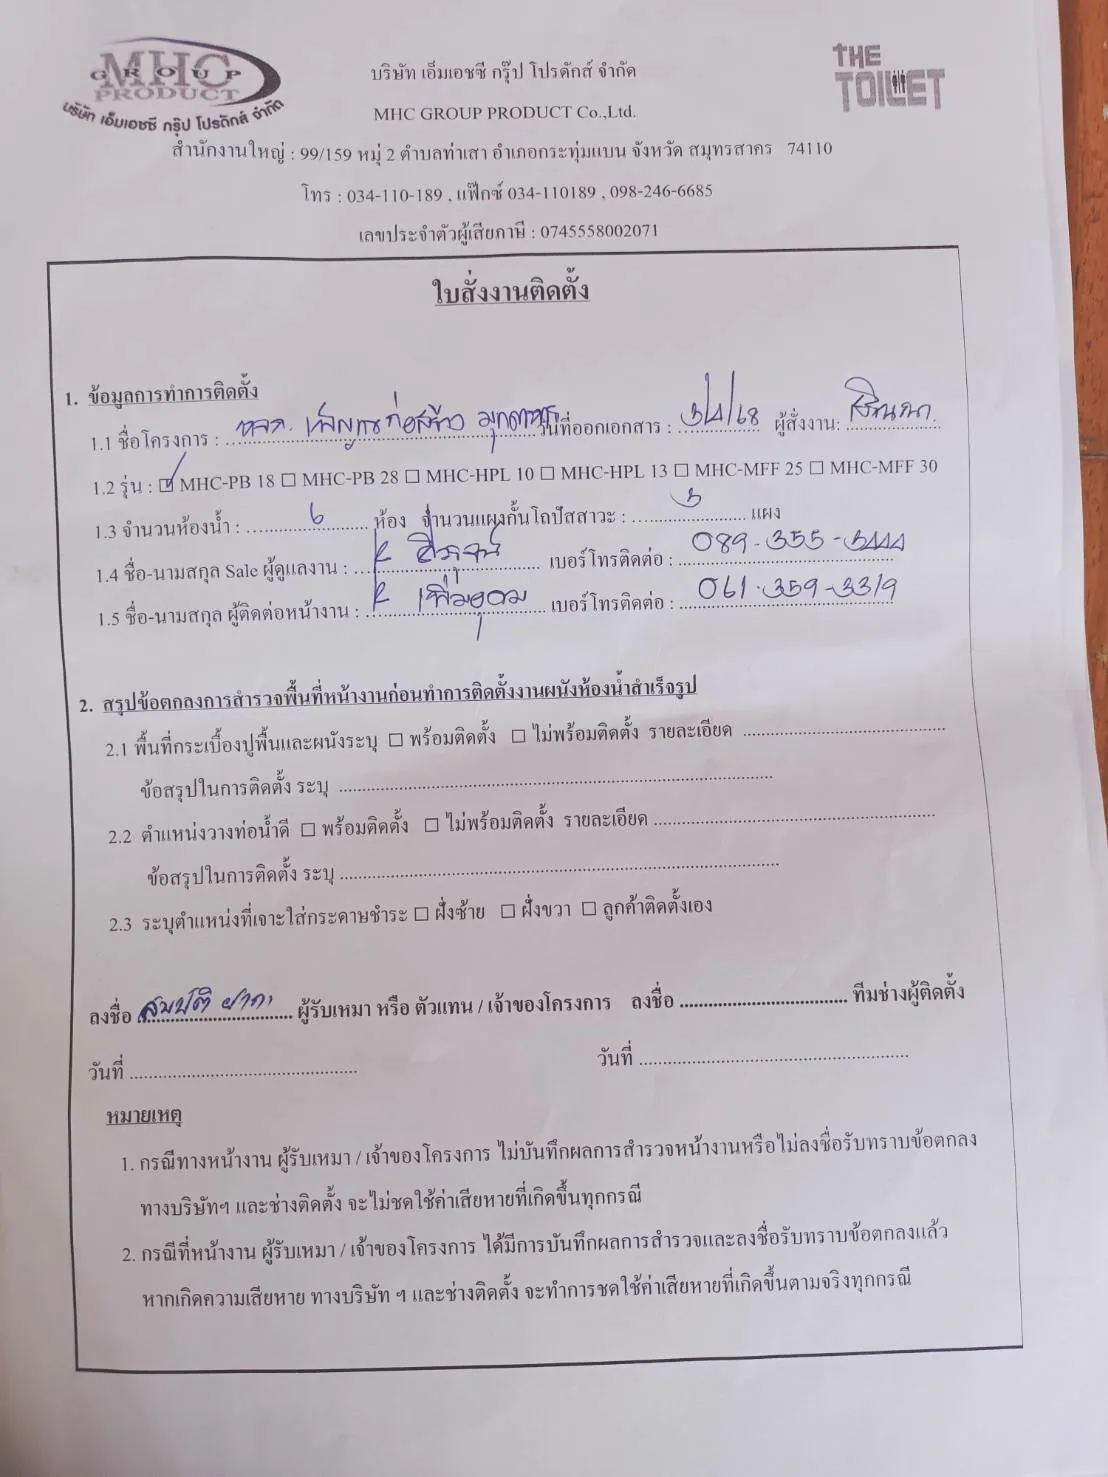 MHC
GROUP
PRODUCT
บริษัท เอ็มเอชซี กรุ๊ป โปรดักส์ จำกัด
THE
TOILET
บริษัท เอ็มเอชซี กรุ๊ป โปรดักส์ จำกัด
MHC GROUP PRODUCT Co.,Ltd.
สำนักงานใหญ่ : 99/159 หมู่ 2 ตำบลท่าเสา อำเภอกระทุ่มแบน จังหวัด สมุทรสาคร 74110
โทร : 034-110-189 , แฟ๊กซ์ 034-110189 , 098-246-6685
เลขประจำตัวผู้เสียภาษี : 0745558002071
ใบสั่งงานติดตั้ง
1. ข้อมูลการทำการติดตั้ง
1.1 ชื่อโครงการ : หจก. ก่อสร้าง วันที่ออกเอกสาร : 3/4/68 ผู้สั่งงาน:
1.2 รุ่น : ☑ MHC-PB 18 ☐ MHC-PB 28 ☐ MHC-HPL 10 ☐ MHC-HPL 13 ☐ MHC-MFF 25 ☐ MHC-MFF 30
1.3 จำนวนห้องน้ำ : 6 ห้อง จำนวนแผงกั้นโถปัสสาวะ : 3 แผง
1.4 ชื่อ-นามสกุล Sale ผู้ดูแลงาน : K เบอร์โทรติดต่อ : 089-355-3444
1.5 ชื่อ-นามสกุล ผู้ติดต่อหน้างาน : K เพิ่มอุดม เบอร์โทรติดต่อ : 061-359-3319
2. สรุปข้อตกลงการสำรวจพื้นที่หน้างานก่อนทำการติดตั้งงานผนังห้องน้ำสำเร็จรูป
2.1 พื้นที่กระเบื้องปูพื้นและผนังระบุ ☐ พร้อมติดตั้ง ☐ ไม่พร้อมติดตั้ง รายละเอียด ........................................
ข้อสรุปในการติดตั้ง ระบุ ........................................
2.2 ตำแหน่งวางท่อน้ำดี ☐ พร้อมติดตั้ง ☐ ไม่พร้อมติดตั้ง รายละเอียด ........................................
ข้อสรุปในการติดตั้ง ระบุ ........................................
2.3 ระบุตำแหน่งที่เจาะใส่กระดาษชำระ ☐ ฝั่งซ้าย ☐ ฝั่งขวา ☐ ลูกค้าติดตั้งเอง
ลงชื่อ สมบัติ ผู้รับเหมา หรือ ตัวแทน / เจ้าของโครงการ ลงชื่อ .................................... ทีมช่างผู้ติดตั้ง
วันที่ ........................................ วันที่ ........................................
หมายเหตุ
1. กรณีทางหน้างาน ผู้รับเหมา / เจ้าของโครงการ ไม่บันทึกผลการสำรวจหน้างานหรือไม่ลงชื่อรับทราบข้อตกลง
ทางบริษัทฯ และช่างติดตั้ง จะไม่ชดใช้ค่าเสียหายที่เกิดขึ้นทุกกรณี
2. กรณีที่หน้างาน ผู้รับเหมา / เจ้าของโครงการ ได้มีการบันทึกผลการสำรวจและลงชื่อรับทราบข้อตกลงแล้ว
หากเกิดความเสียหาย ทางบริษัท ฯ และช่างติดตั้ง จะทำการชดใช้ค่าเสียหายที่เกิดขึ้นตามจริงทุกกรณี